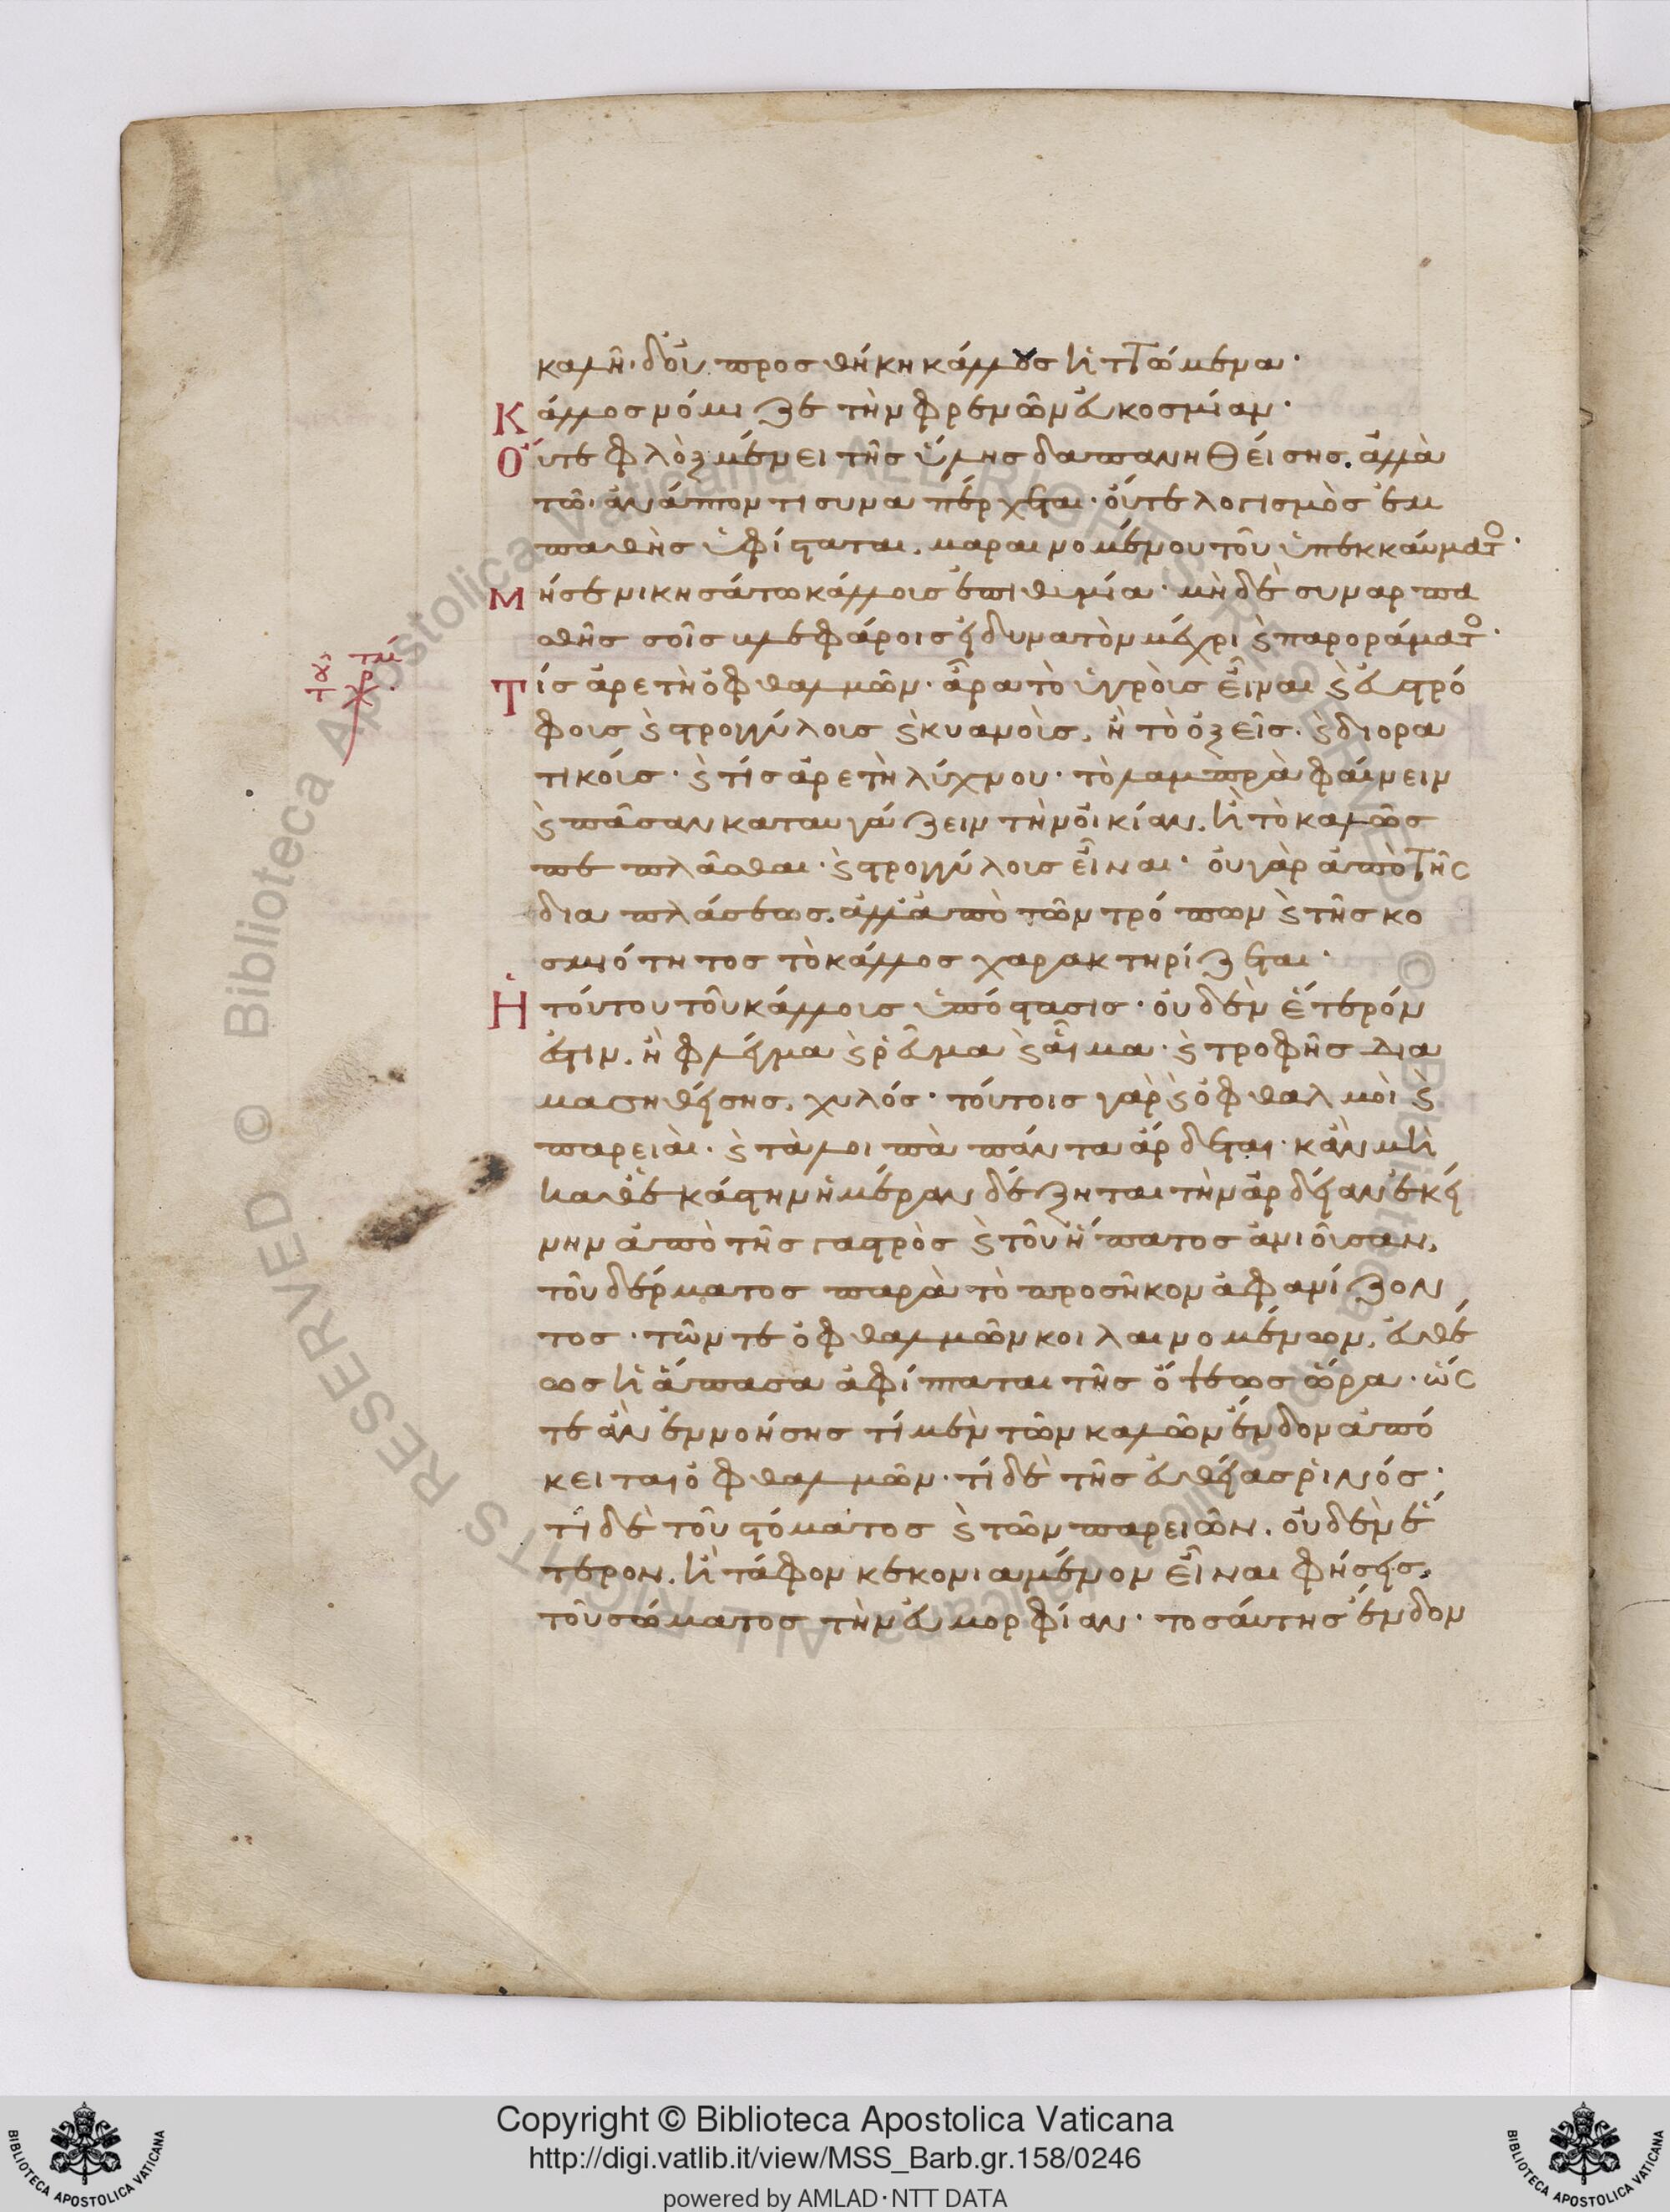 καλὴ· δὸυ προσθήκη κάλλους ἡττώμενα·
Κάλλος νόμιζε τὴν φρενῶν εὐκοσμίαν·
Οὔτε φλὸξ μένει τῆς ὕλης δαπανηθείσης. ἀλλὰ
τῶ ἀνάπτοντι συναπέρχεται· οὔτε λογισμὸς ἐμ
παθὴς ὑφίσταται, μαραινομένου τοῦ ὑπεκκαύματο·
Μήσε νικησάτω κάλλους ἐπιθυμία· μὴ δὲ συναρπα
σθῆς σοῖς βλεφάροις εἰ δυνατὸν μέχρι ϛ παροράματο·
του ἁγ χρ τμ
Τίς ἀρετὴ ὀφθαλμῶν· ἆρα τὸ ὑγροὺς εἶναι ϛ εὐστρό
φους ϛ στρογγύλους ϛ κυανοὺς, ἢ τὸ ὀξεῖς ϛ διορα
τικούς· ϛ τίς ἀρετὴ λύχνου· τὸ λαμπρὰ φαίνειν
ϛ πᾶσαν καταυγάζειν τὴν οἰκίαν, ἢ τὸ καλῶς
πεπλᾶσθαι ϛ στρογγύλους εἶναι· οὐ γὰρ ἀπὸ τῆς
διαπλάσεως, ἀλλ' ἀπὸ τῶν τρόπων ϛ τῆς κο
σμιότητος τὸ κάλλος χαρακτηρίζεται·
Ἡ τούτου τοῦ κάλλους ὑπόστασις· οὐδὲν ἕτερόν
ἐστιν, ἢ φλέγμα ϛ ῥεῦμα ϛ αἷμα ϛ τροφῆς δια
μασηθείσης, χυλός· τούτοις γὰρ ϛ ὀφθαλμοὶ ϛ
παρειαὶ ϛ τὰ λοιπὰ πάντα ἄρδεται· κἂν μὴ
καθεκάστην ἡμέραν δέξηται τὴν ἀρδείαν ἐκεί
νην ἀπὸ τῆς γαστρὸς ϛ τοῦ ἥπατος ἀνιοῦσαν,
τοῦ δέρματος παρὰ τὸ προσῆκον ἀφανίζον
τος· τῶν τε ὀφθαλμῶν κοιλαινομένων, εὐθέ
ως ἡ ἅπασα ἀφίπταται τῆς ὄψεως ὥρα· ὥς
τε ἂν ἐννοήσης τί μὲν τῶν καλῶν ἔνδον ἀπό
κειται ὀφθαλμῶν· τί δὲ τῆς εὐθείας ῥινός·
τί δὲ τοῦ στόματος ϛ τῶν παρειῶν, οὐδὲν ἕ
τερον, ἢ τάφον κεκονιαμένον εἶναι φήσεις,
τοῦ σώματος τὴν εὐμορφίαν· τοσαύτης ἔνδον
Copyright © Biblioteca Apostolica Vaticana
http://digi.vatlib.it/view/MSS_Barb.gr.158/0246
powered by AMLAD·NTT DATA
BIBLIOTECA APOSTOLICA VATICANA
BIBLIOTECA APOSTOLICA VATICANA
© Biblioteca Apostolica Vaticana ALL RIGHTS RESERVED
© Biblioteca Apostolica Vaticana ALL RIGHTS RESERVED